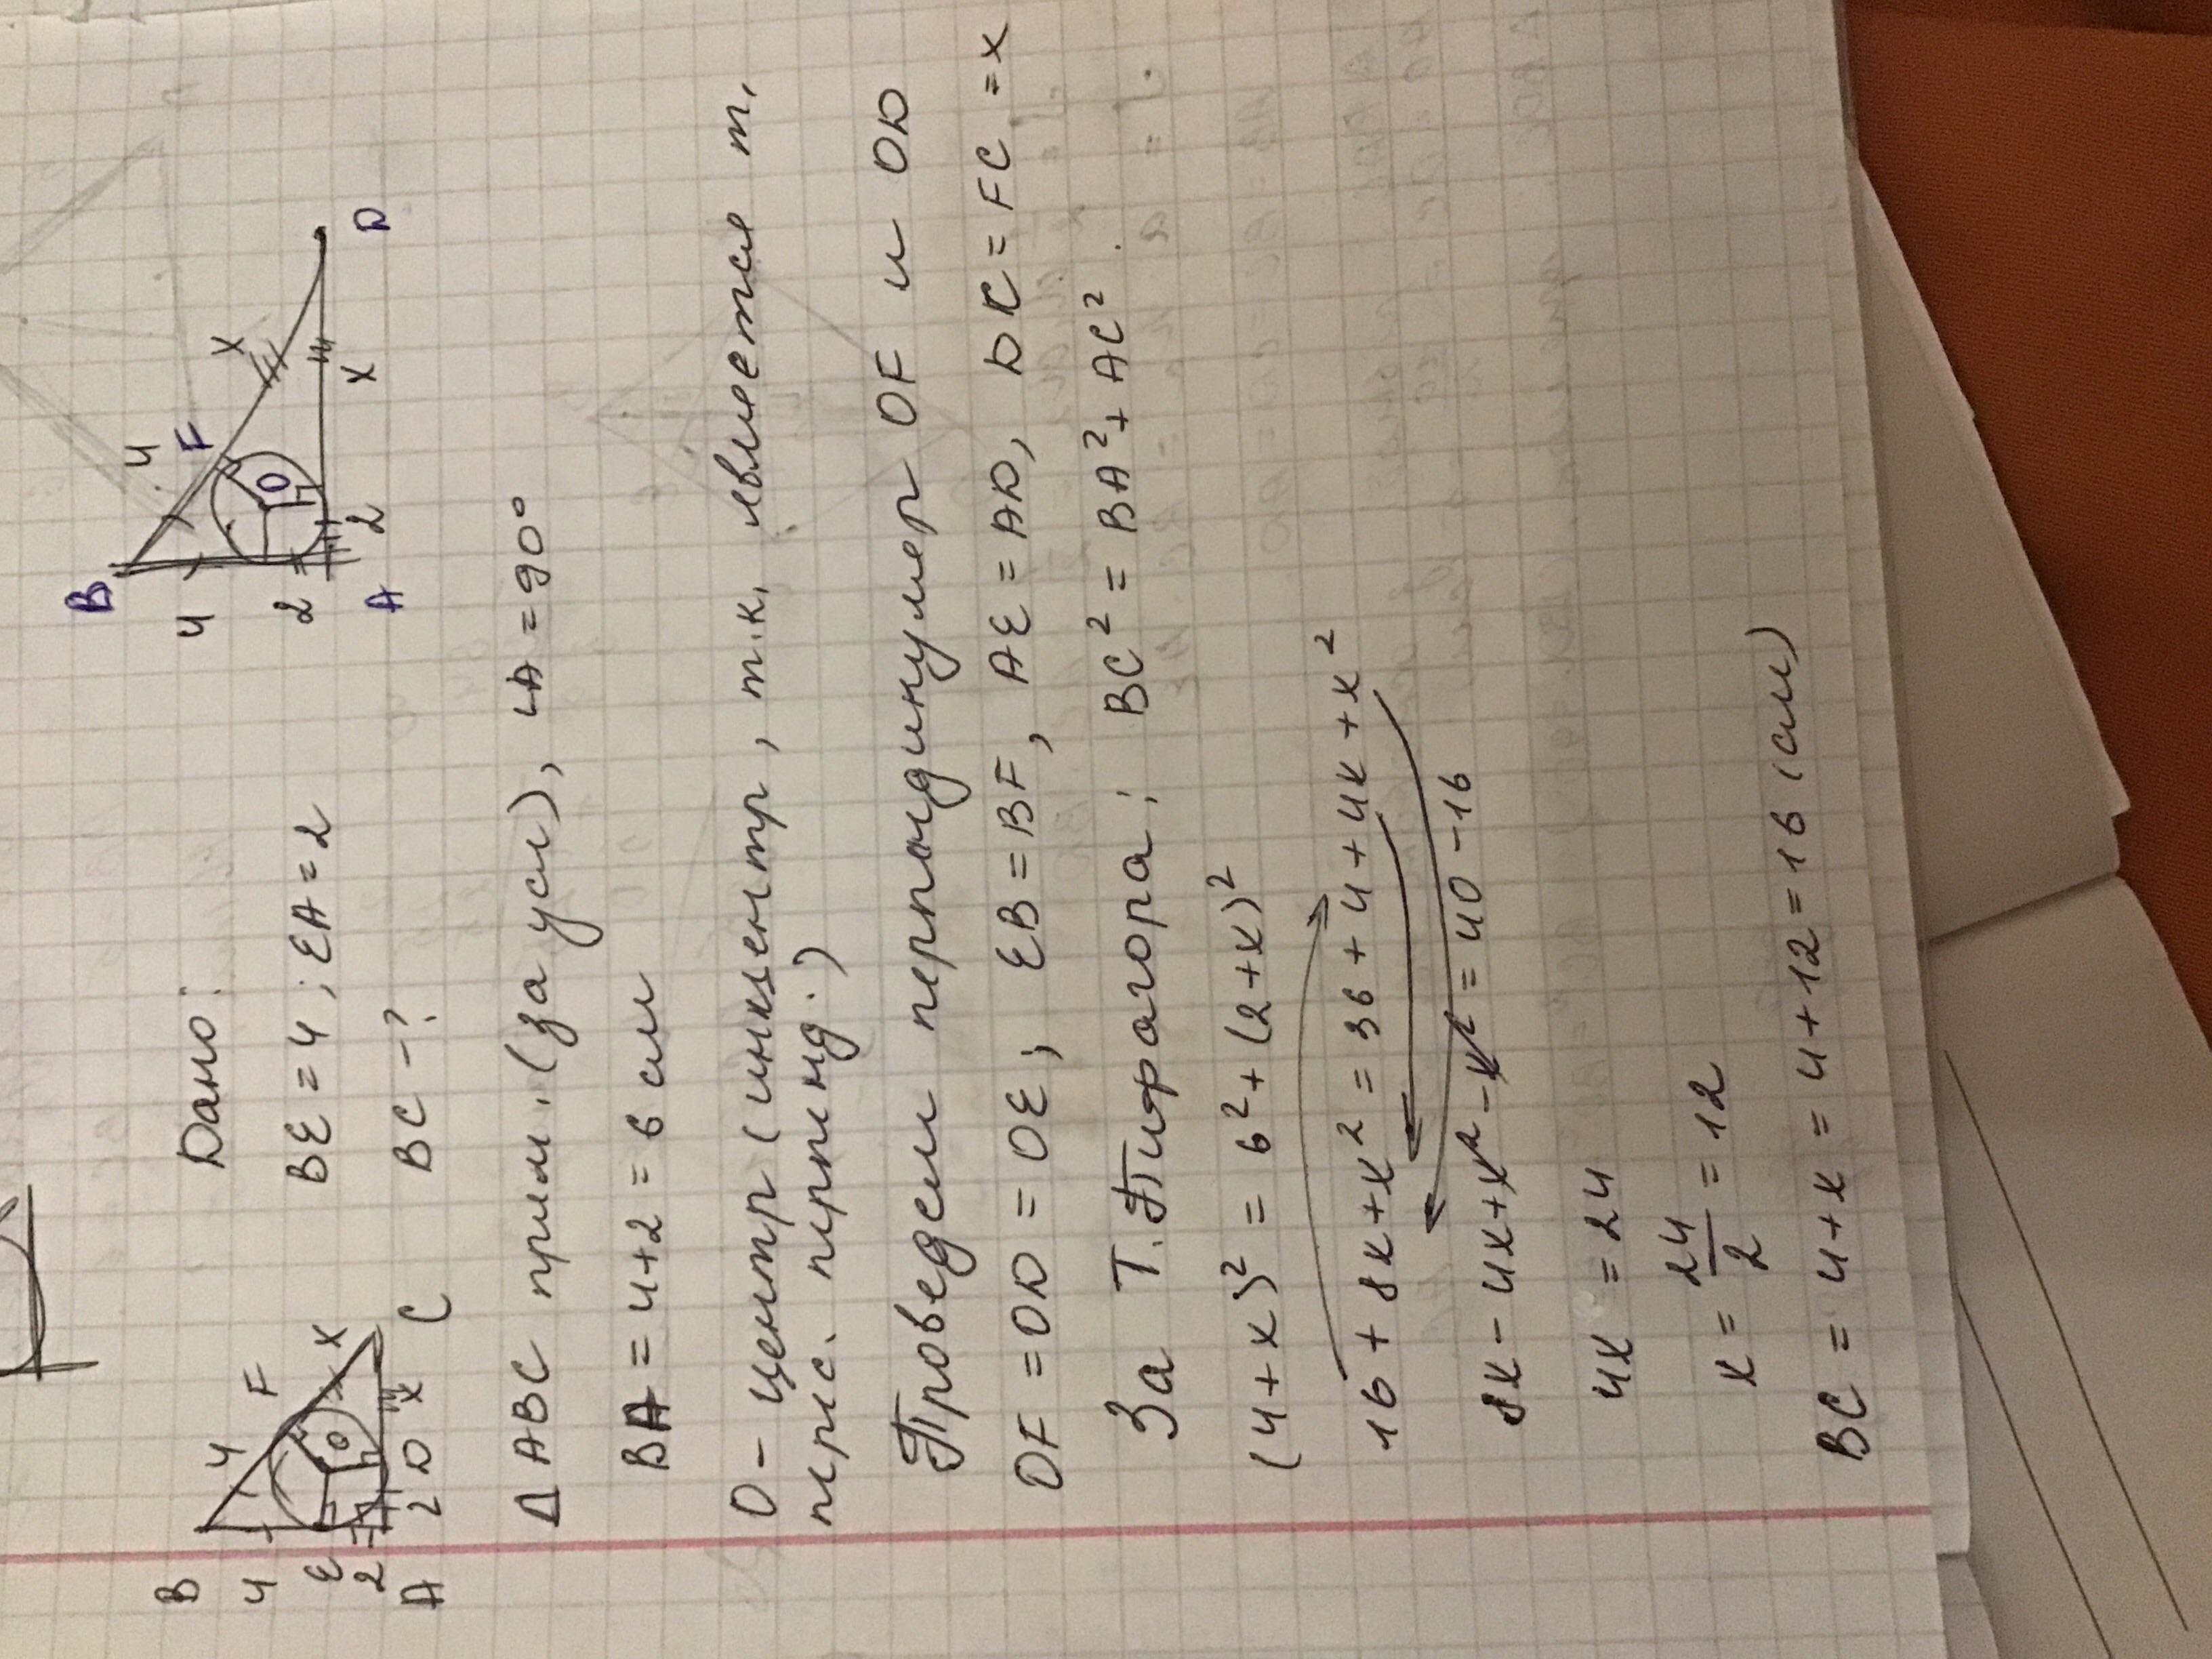 B
4
4
F
E
O
x
2
A
2
D
x
C
Дано:
BE = 4 ; EA = 2
BC - ?
B
4
4
F
x
O
2
A
2
x
D
Δ ABC прям. (за усл), ∟A = 90°
BA = 4+2 = 6 см
O - центр (инкцентр, т.к. является т.
перс. перпенд.)
Проведем перпендикуляр OF и OD
OF = OD = OE; EB = BF, AE = AD, DC = FC = x
За Т. Пифагора: BC² = BA² + AC²
(4+x)² = 6² + (2+x)²
16 + 8x + x² = 36 + 4 + 4x + x²
8x - 4x + x² - x² = 40 - 16
4x = 24
x = 24/2 = 12
BC = 4+x = 4+12 = 16 (см)